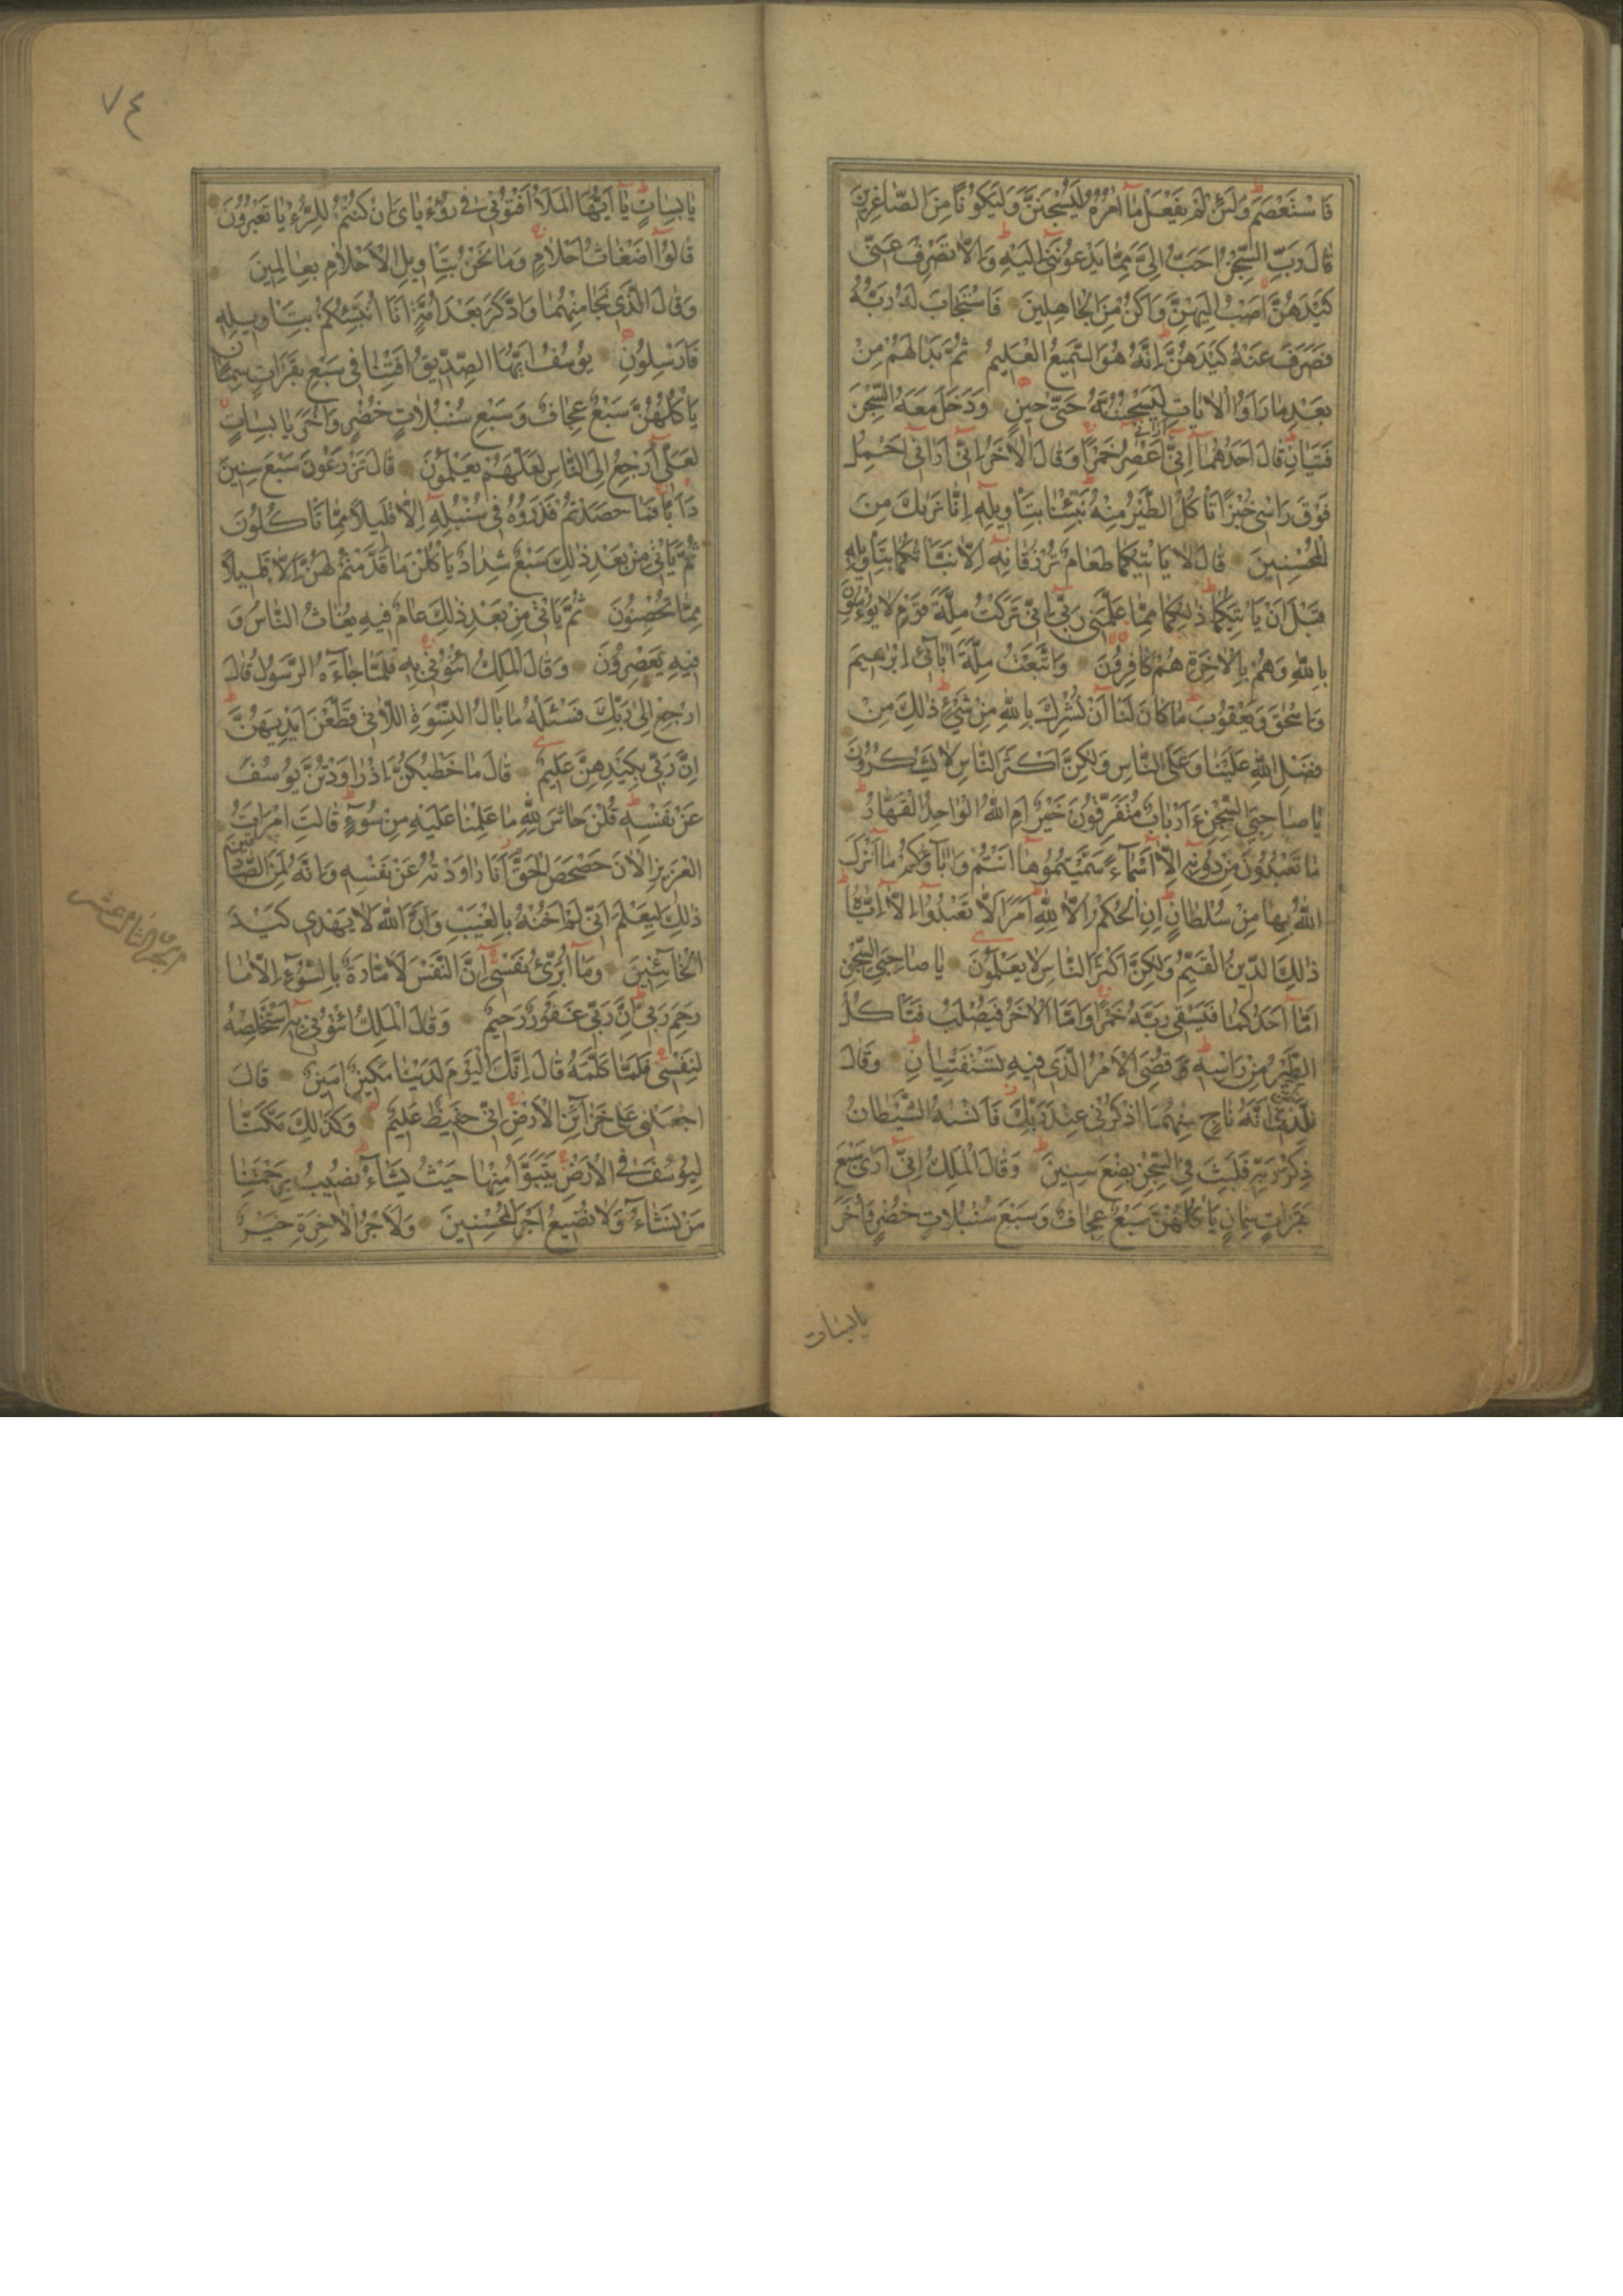 فَاسْتَعْصَمَ وَلَئِنْ لَمْ يَفْعَلْ مَآ اٰمُرُهُ لَيُسْجَنَنَّ وَلَيَكُونًا مِنَ الصَّاغِرِينَ
قَالَ رَبِّ السِّجْنُ اَحَبُّ اِلَىَّ مِمَّا يَدْعُونَنِى اِلَيْهِ وَاِلَّا تَصْرِفْ عَنِّى
كَيْدَهُنَّ اَصْبُ اِلَيْهِنَّ وَاَكُنْ مِنَ الْجَاهِلِينَ فَاسْتَجَابَ لَهُ رَبُّهُ
فَصَرَفَ عَنْهُ كَيْدَهُنَّ اِنَّهُ هُوَ السَّمِيعُ الْعَلِيمُ ثُمَّ بَدَا لَهُمْ مِنْ
بَعْدِ مَا رَاَوُا الْاٰيَاتِ لَيَسْجُنُنَّهُ حَتّٰى حِينٍ وَدَخَلَ مَعَهُ السِّجْنَ
فَتَيَانِ قَالَ اَحَدُهُمَآ اِنِّى اَرٰانِى اَعْصِرُ خَمْرًا وَقَالَ الْاٰخَرُ اِنِّى اَرٰانِى اَحْمِلُ
فَوْقَ رَاْسِى خُبْزًا تَاْكُلُ الطَّيْرُ مِنْهُ نَبِّئْنَا بِتَاْوِيلِهِ اِنَّا نَرٰيكَ مِنَ
الْمُحْسِنِينَ قَالَ لَا يَاْتِيكُمَا طَعَامٌ تُرْزَقَانِهِ اِلَّا نَبَّاْتُكُمَا بِتَاْوِيلِهِ
قَبْلَ اَنْ يَاْتِيَكُمَا ذٰلِكُمَا مِمَّا عَلَّمَنِى رَبِّى اِنِّى تَرَكْتُ مِلَّةَ قَوْمٍ لَا يُؤْمِنُونَ
بِاللّٰهِ وَهُمْ بِالْاٰخِرَةِ هُمْ كَافِرُونَ وَاتَّبَعْتُ مِلَّةَ اٰبَآئِى اِبْرٰهِيمَ
وَاِسْحٰقَ وَيَعْقُوبَ مَا كَانَ لَنَآ اَنْ نُشْرِكَ بِاللّٰهِ مِنْ شَىْءٍ ذٰلِكَ مِنْ
فَضْلِ اللّٰهِ عَلَيْنَا وَعَلَى النَّاسِ وَلٰكِنَّ اَكْثَرَ النَّاسِ لَا يَشْكُرُونَ
يَا صَاحِبَىِ السِّجْنِ ءَاَرْبَابٌ مُتَفَرِّقُونَ خَيْرٌ اَمِ اللّٰهُ الْوَاحِدُ الْقَهَّارُ
مَا تَعْبُدُونَ مِنْ دُونِهِ اِلَّآ اَسْمَآءً سَمَّيْتُمُوهَآ اَنْتُمْ وَاٰبَآؤُكُمْ مَآ اَنْزَلَ
اللّٰهُ بِهَا مِنْ سُلْطَانٍ اِنِ الْحُكْمُ اِلَّا لِلّٰهِ اَمَرَ اَلَّا تَعْبُدُوٓا اِلَّآ اِيَّاهُ
ذٰلِكَ الدِّينُ الْقَيِّمُ وَلٰكِنَّ اَكْثَرَ النَّاسِ لَا يَعْلَمُونَ يَا صَاحِبَىِ السِّجْنِ
اَمَّآ اَحَدُكُمَا فَيَسْقِى رَبَّهُ خَمْرًا وَاَمَّا الْاٰخَرُ فَيُصْلَبُ فَتَاْكُلُ
الطَّيْرُ مِنْ رَاْسِهِ قُضِىَ الْاَمْرُ الَّذِى فِيهِ تَسْتَفْتِيَانِ وَقَالَ
لِلَّذِى ظَنَّ اَنَّهُ نَاجٍ مِنْهُمَا اذْكُرْنِى عِنْدَ رَبِّكَ فَاَنْسٰيهُ الشَّيْطَانُ
ذِكْرَ رَبِّهِ فَلَبِثَ فِى السِّجْنِ بِضْعَ سِنِينَ وَقَالَ الْمَلِكُ اِنِّى اَرٰى سَبْعَ
بَقَرَاتٍ سِمَانٍ يَاْكُلُهُنَّ سَبْعٌ عِجَافٌ وَسَبْعَ سُنْبُلَاتٍ خُضْرٍ وَاُخَرَ
يابسات
٧٤
يَابِسَاتٍ يَآ اَيُّهَا الْمَلَاُ اَفْتُونِى فِى رُؤْيَاىَ اِنْ كُنْتُمْ لِلرُّءْيَا تَعْبُرُونَ
قَالُوٓا اَضْغَاثُ اَحْلَامٍ وَمَا نَحْنُ بِتَاْوِيلِ الْاَحْلَامِ بِعَالِمِينَ
وَقَالَ الَّذِى نَجَا مِنْهُمَا وَادَّكَرَ بَعْدَ اُمَّةٍ اَنَا اُنَبِّئُكُمْ بِتَاْوِيلِهِ
فَاَرْسِلُونِ يُوسُفُ اَيُّهَا الصِّدِّيقُ اَفْتِنَا فِى سَبْعِ بَقَرَاتٍ سِمَانٍ
يَاْكُلُهُنَّ سَبْعٌ عِجَافٌ وَسَبْعِ سُنْبُلَاتٍ خُضْرٍ وَاُخَرَ يَابِسَاتٍ
لَعَلِّىٓ اَرْجِعُ اِلَى النَّاسِ لَعَلَّهُمْ يَعْلَمُونَ قَالَ تَزْرَعُونَ سَبْعَ سِنِينَ
دَاَبًا فَمَا حَصَدْتُمْ فَذَرُوهُ فِى سُنْبُلِهِ اِلَّا قَلِيلًا مِمَّا تَاْكُلُونَ
ثُمَّ يَاْتِى مِنْ بَعْدِ ذٰلِكَ سَبْعٌ شِدَادٌ يَاْكُلْنَ مَا قَدَّمْتُمْ لَهُنَّ اِلَّا قَلِيلًا
مِمَّا تُحْصِنُونَ ثُمَّ يَاْتِى مِنْ بَعْدِ ذٰلِكَ عَامٌ فِيهِ يُغَاثُ النَّاسُ وَ
فِيهِ يَعْصِرُونَ وَقَالَ الْمَلِكُ ائْتُونِى بِهِ فَلَمَّا جَآءَهُ الرَّسُولُ قَالَ
ارْجِعْ اِلٰى رَبِّكَ فَسْئَلْهُ مَا بَالُ النِّسْوَةِ اللَّاتِى قَطَّعْنَ اَيْدِيَهُنَّ
اِنَّ رَبِّى بِكَيْدِهِنَّ عَلِيمٌ قَالَ مَا خَطْبُكُنَّ اِذْ رَاوَدْتُنَّ يُوسُفَ
عَنْ نَفْسِهِ قُلْنَ حَاشَ لِلّٰهِ مَا عَلِمْنَا عَلَيْهِ مِنْ سُوٓءٍ قَالَتِ امْرَاَتُ
الْعَزِيزِ الْاٰنَ حَصْحَصَ الْحَقُّ اَنَا رَاوَدْتُهُ عَنْ نَفْسِهِ وَاِنَّهُ لَمِنَ الصَّادِقِينَ
ذٰلِكَ لِيَعْلَمَ اَنِّى لَمْ اَخُنْهُ بِالْغَيْبِ وَاَنَّ اللّٰهَ لَا يَهْدِى كَيْدَ
الْخَآئِنِينَ وَمَآ اُبَرِّئُ نَفْسِى اِنَّ النَّفْسَ لَاَمَّارَةٌ بِالسُّوٓءِ اِلَّا مَا
رَحِمَ رَبِّى اِنَّ رَبِّى غَفُورٌ رَحِيمٌ وَقَالَ الْمَلِكُ ائْتُونِى بِهِ اَسْتَخْلِصْهُ
لِنَفْسِى فَلَمَّا كَلَّمَهُ قَالَ اِنَّكَ الْيَوْمَ لَدَيْنَا مَكِينٌ اَمِينٌ قَالَ
اجْعَلْنِى عَلٰى خَزَآئِنِ الْاَرْضِ اِنِّى حَفِيظٌ عَلِيمٌ وَكَذٰلِكَ مَكَّنَّا
لِيُوسُفَ فِى الْاَرْضِ يَتَبَوَّاُ مِنْهَا حَيْثُ يَشَآءُ نُصِيبُ بِرَحْمَتِنَا
مَنْ نَشَآءُ وَلَا نُضِيعُ اَجْرَ الْمُحْسِنِينَ وَلَاَجْرُ الْاٰخِرَةِ خَيْرٌ
الجزء الثالث عشر